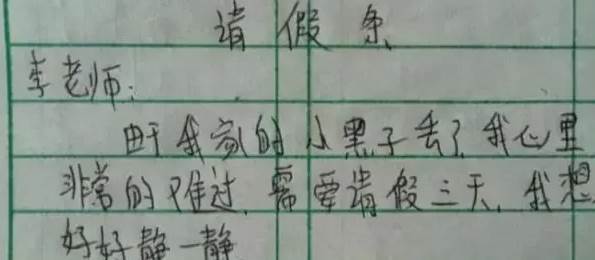 请假条
李老师:
由于我家的小黑子丢了,我心里
非常的难过,需要请假三天,我想
好好静一静